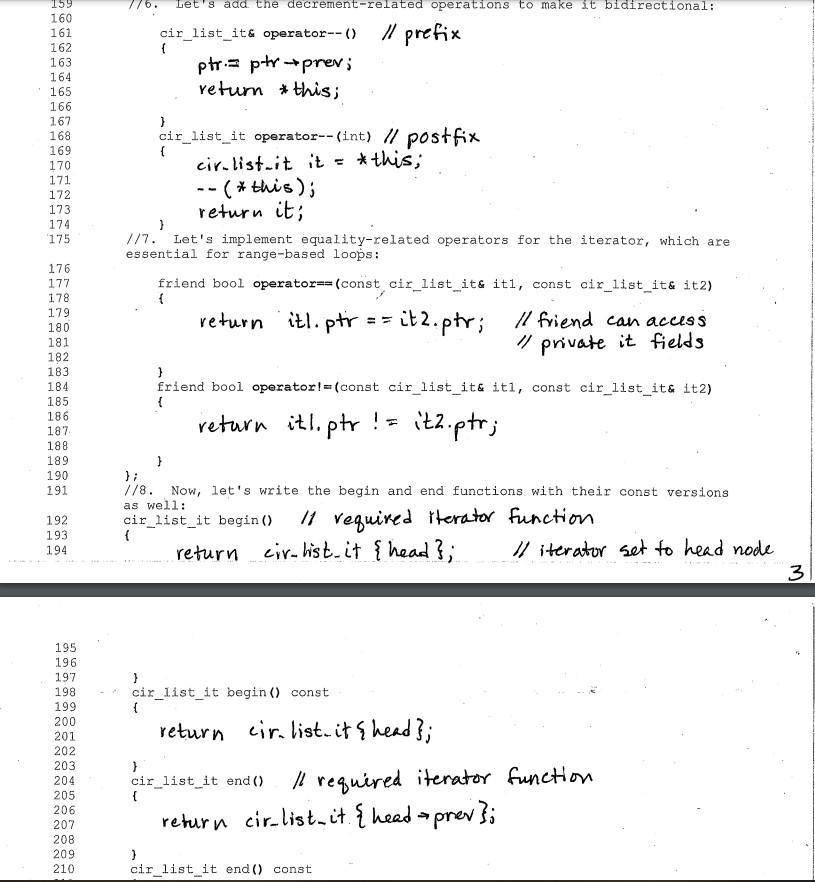 159 //6. Let's add the decrement-related operations to make it bidirectional:
160
161 cir_list_it& operator--() // prefix
162 {
163 ptr = ptr→prev;
164
165 return *this;
166
167 }
168 cir_list_it operator--(int) // postfix
169 {
170 cir_list_it it = *this;
171
172 --(*this);
173 return it;
174 }
175 //7. Let's implement equality-related operators for the iterator, which are
essential for range-based loops:
176
177 friend bool operator==(const cir_list_it& it1, const cir_list_it& it2)
178 {
179
180 return it1.ptr == it2.ptr; // friend can access
181 // private it fields
182
183 }
184 friend bool operator!=(const cir_list_it& it1, const cir_list_it& it2)
185 {
186
187 return it1.ptr != it2.ptr;
188
189 }
190 };
191 //8. Now, let's write the begin and end functions with their const versions
as well:
192 cir_list_it begin() // required iterator function
193 {
194 return cir_list_it {head}; // iterator set to head node
3
195
196
197 }
198 cir_list_it begin() const
199 {
200
201 return cir_list_it{head};
202
203 }
204 cir_list_it end() // required iterator function
205 {
206
207 return cir_list_it {head→prev};
208
209 }
210 cir_list_it end() const